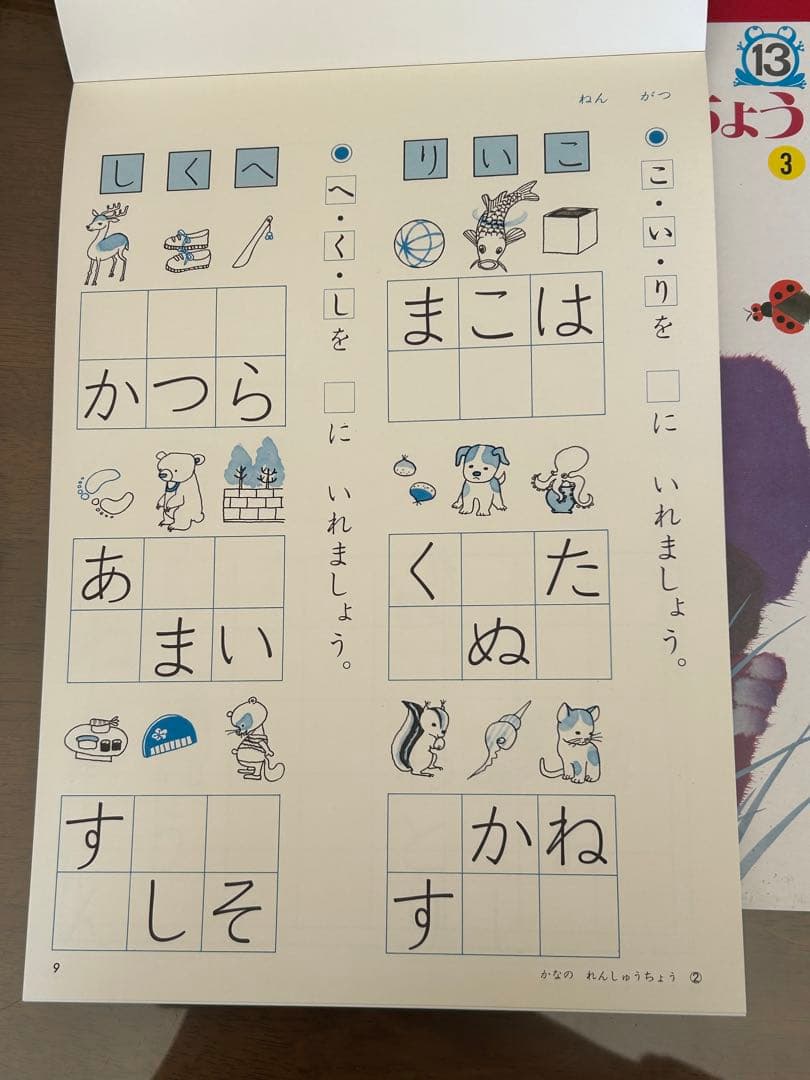 ねん がつ
こ・い・りを □に いれましょう。
り い こ
まこは
く た
ぬ
かね
す
へ・く・しを □に いれましょう。
し く へ
かつら
あ
まい
す
しそ
9
かなの れんしゅうちょう ②
13
ちょう
3